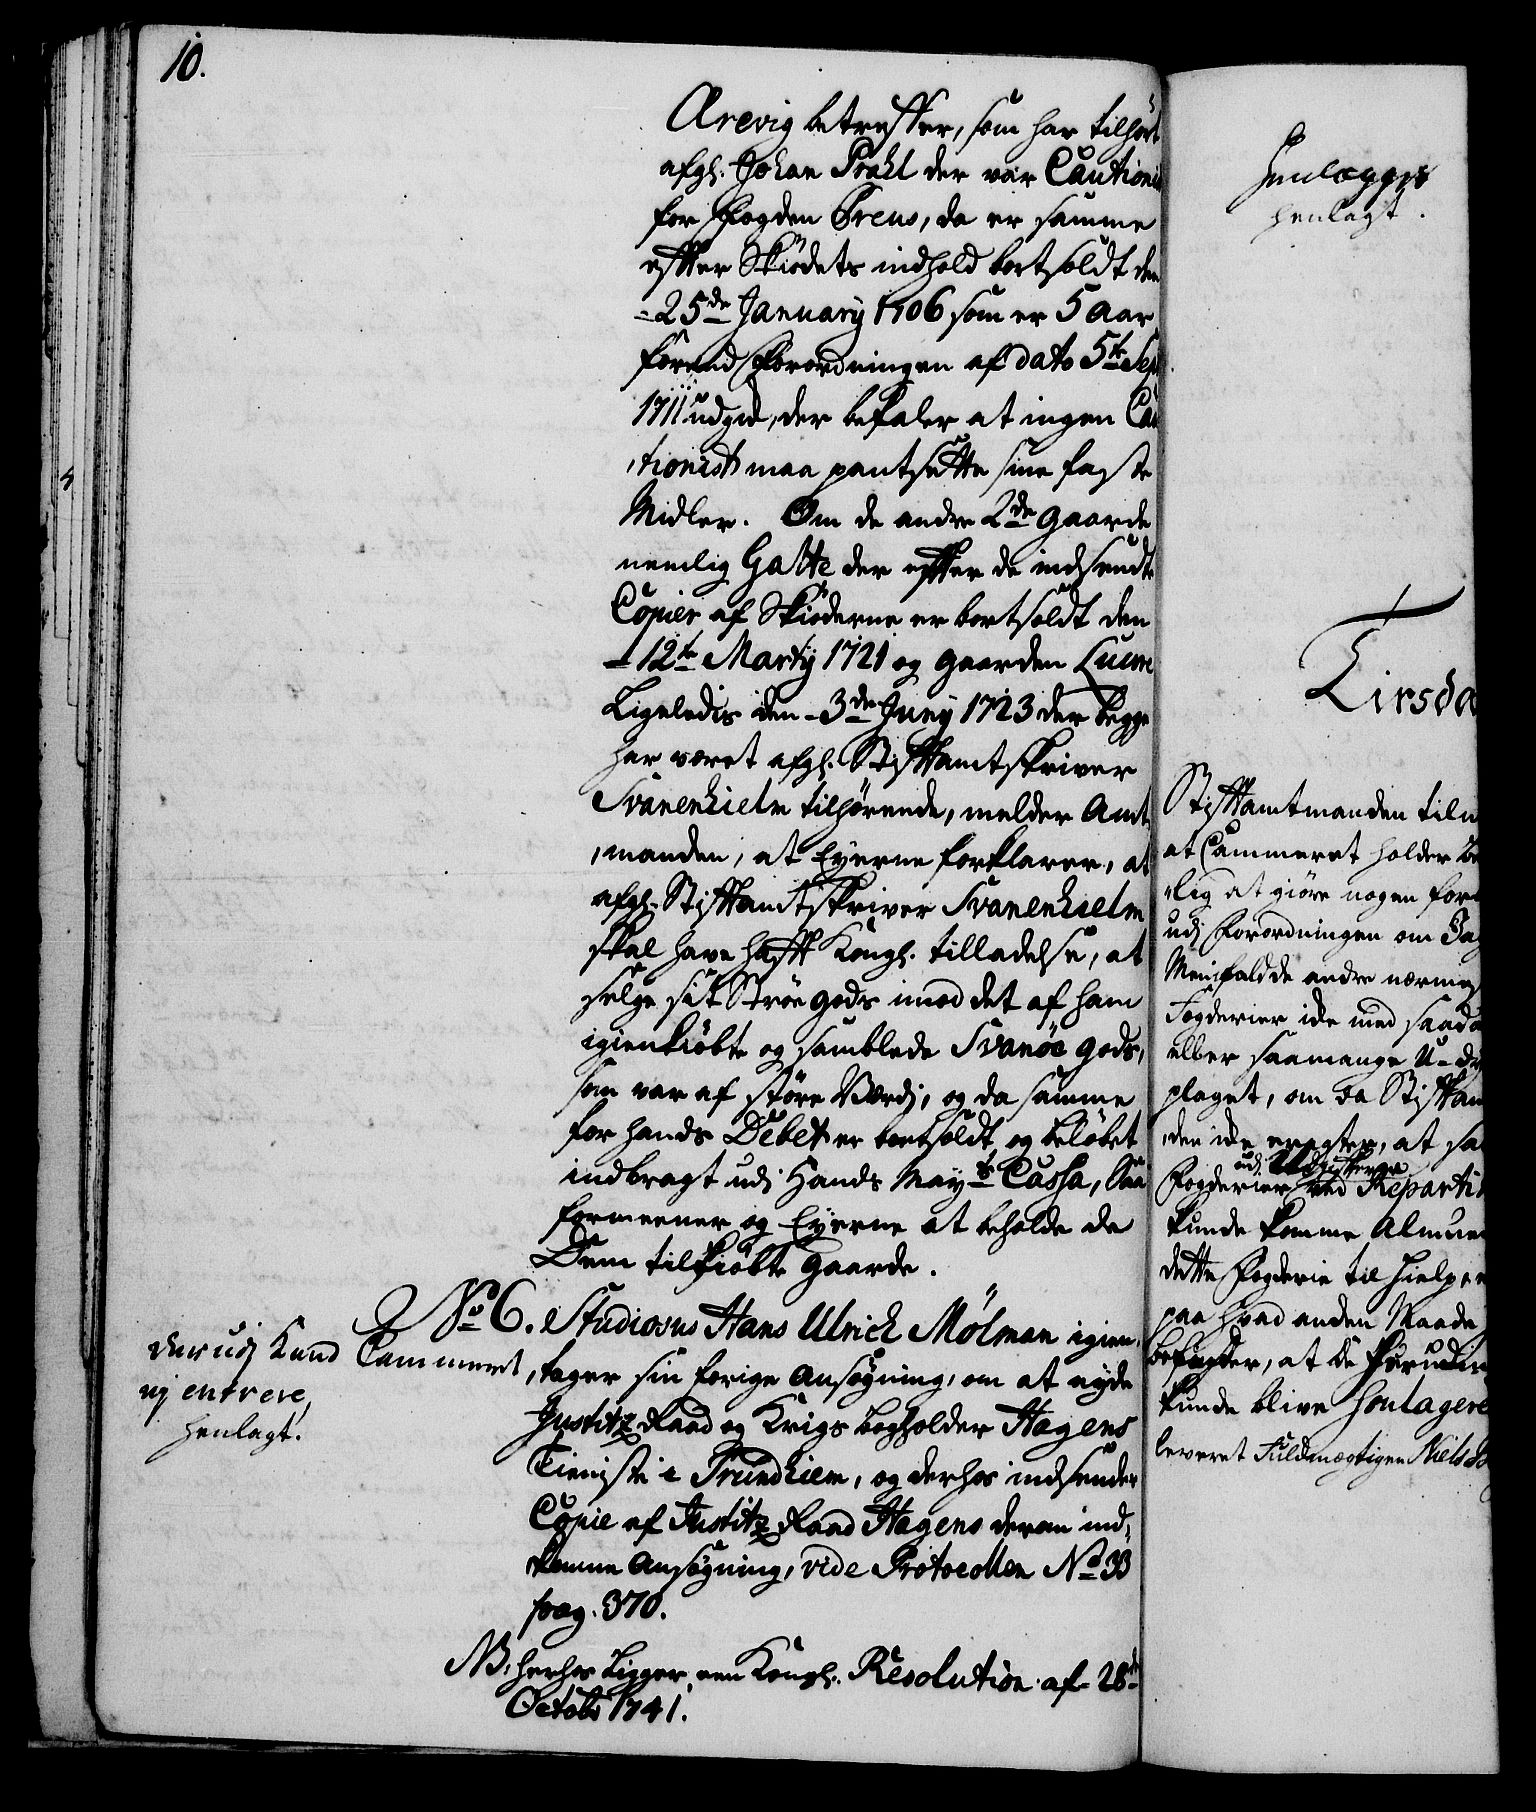 10.
Ærevig betreffer, som har tilhört
afgl. Johan Prahl der var Cautionis
for Fogden Treus, da er samme
efter Skiödets indhold bortsoldt den
25de January 1706 som er 5 Aar
forend Forordningen af dato 5te Sept
1711 udgik, der befaler at ingen Cau
tionist maa pantsette sine faste
Midler. Om de andre 2de gaarde
nemlig Galte der efter de indsendte
Copier af Skiöderne er bortsoldt den
12te Martij 1721 og gaarden
Ligeledis den 3de Junij 1723 der begge
har været afgl. Stiftamtskriver
Svanenhielm tilhörende, melder Amt
manden, at Eyerne forklarer, at
afgl. Stiftamtskriver Svanenhielm
skal have hafft Kongl. tilladelse, at
selge sit Ströe gods imod det af ham
igienkiöbte og samblede Svanöe gods,
som var af större Værdj, og da samme
for hands Debet er bortsoldt og belöbet
indbragt udj Hands Mayts Cassa, Saa
formeener og Eyerne at beholde de
Dem tilkiöbte gaarde.
No 6. Studiosus Hans Ulrich Mölman igien
tager sin forige Ansögning, om at nyde
Justitz Raad og Krigs bogholder Hagens
Tieniste i Trundhiem, og derhos indsender
Copie af Justitz Raad Hagens derom ind
komne Ansögning, vide Protocollen No 33
pag. 370.
NB. herhos Ligger een Kongl. Resolution af 28de
Octobr 1741.
derudj Kand Cammeret
ej entrere,
henlagt.
Henlegges
henlagt.
Tirsda
Stiftamtmanden
at Cammeret holder
lig at giöre nogen
udj Forordningen om
Menifald de andre
Fogderier ide med
eller saamange
plaget, om da
den ide eragter, at
udj
Fogderier ved Reparti
kunde komme Almue
dette Fogderie til hielp
paa hvad anden Maade
befinder, at de
kunde blive
leveret Fuldmægtigen Niels